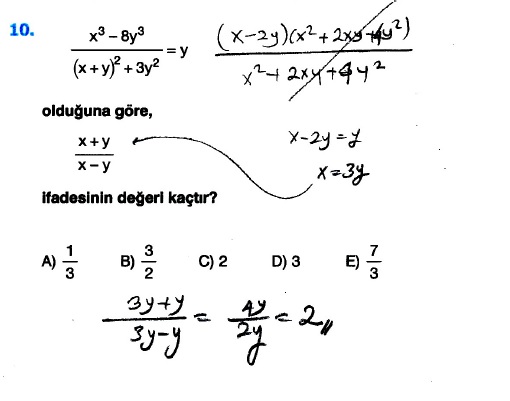 10.
x³ – 8y³ / (x + y)² + 3y² = y
(x-2y)(x²+2xy+4y²) / x²+2xy+4y²
olduğuna göre,
x + y / x – y
x-2y=y
x=3y
ifadesinin değeri kaçtır?
A) 1/3 B) 3/2 C) 2 D) 3 E) 7/3
3y+y / 3y-y = 4y / 2y = 2,,